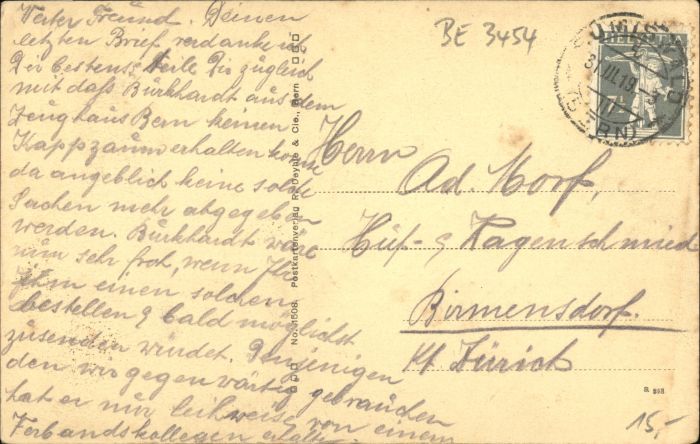 Werter Freund. Deinen
letzten Brief verdanke ich
Dir bestens, teile Dir zugleich
mit dass Burkhardt aus dem
Zeughaus Bern keinen
Kappzaum erhalten konnte
da angeblich keine solche
Sachen mehr abgegeben
werden. Burkhardt wäre
nun sehr froh, wenn Ihr
Ihm einen solchen
bestellen & bald möglichst
zusenden würdet. Denjenigen
den wir gegenwärtig gebrauchen
hat er nur leihweise von einem
Verbandskollegen erhalten.
No. 1508. Postkartenverlag R. Deyhle & Cie., Bern
BE 3454
SUMISWALD
31.III.19
(BERN)
HELVETIA
Herrn
Ad. Morf,
Huf- & Wagenschmied
Birmensdorf.
Kt. Zürich
15.-